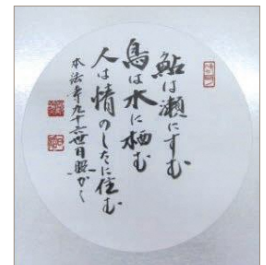 鮎は瀬にすむ
鳥は木に栖む
人は情のしたに住む
本法寺九十六世日照かく